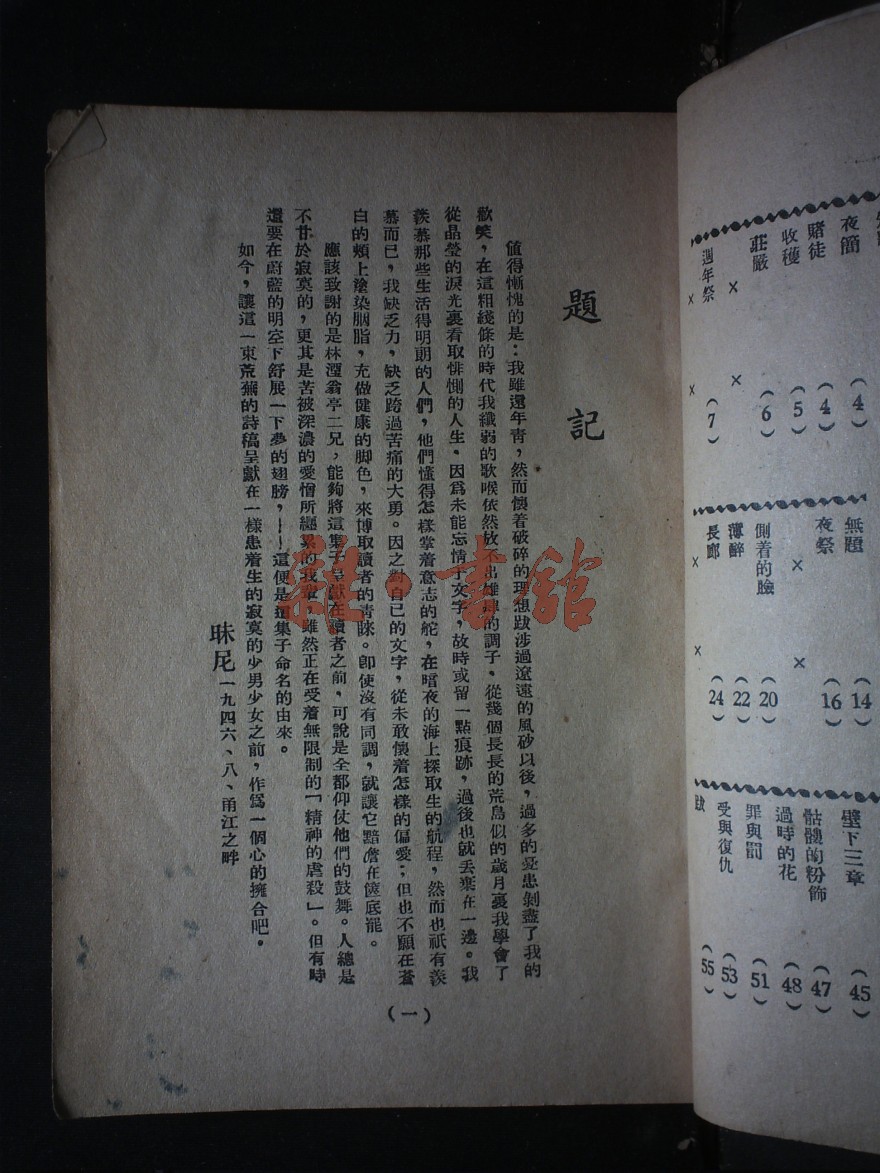 題記
值得慚愧的是：我雖還年靑，然而懷着破碎的理想跋涉過遼遠的風砂以後，過多的憂患剝盡了我的
歡笑，在這粗綫條的時代我纖弱的歌喉依然放不出雄肆的調子。從幾個長長的荒島似的歲月裏我學會了
從晶瑩的淚光裏看取悱惻的人生。因爲未能忘情于文字，故時或留一點痕跡，過後也就丢棄在一邊。我
羨慕那些生活得明朗的人們，他們懂得怎樣掌着意志的舵，在暗夜的海上探取生的航程，然而也祇有羨
慕而已，我缺乏力，缺乏跨過苦痛的大勇。因之對自已的文字，從未敢懷着怎樣的偏愛；但也不願在蒼
白的頰上塗染胭脂，充做健康的脚色，來博取讀者的靑睞。卽使沒有同調，就讓它黯澹在篋底罷。
應該致謝的是林湮翁亭二兄，能夠將這集子呈獻在讀者之前，可說是全都仰仗他們的鼓舞。人總是
不甘於寂寞的，更其是苦被深濃的愛憎所纏累的我輩，雖然正在受着無限制的「精神的虐殺」。但有時
還要在蔚藍的明空下舒展一下夢的翅膀，——這便是這集子命名的由來。
如今，讓這一束荒蕪的詩稿呈獻在一樣患着生的寂寞的少男少女之前，作爲一個心的擁合吧。
昧尼一九四六、八、甬江之畔
（一）
雜·書館
夜簡（4）
賭徒（4）
收穫（5）
莊嚴（6）
×　×
週年祭（7）
×　×
無題（14）
夜祭（16）
×　×
側着的臉（20）
薄醉（22）
長廊（24）
×　×
壁下三章（45）
骷髏的粉飾（47）
過時的花（48）
罪與罰（51）
受與復仇（53）
跋（55）